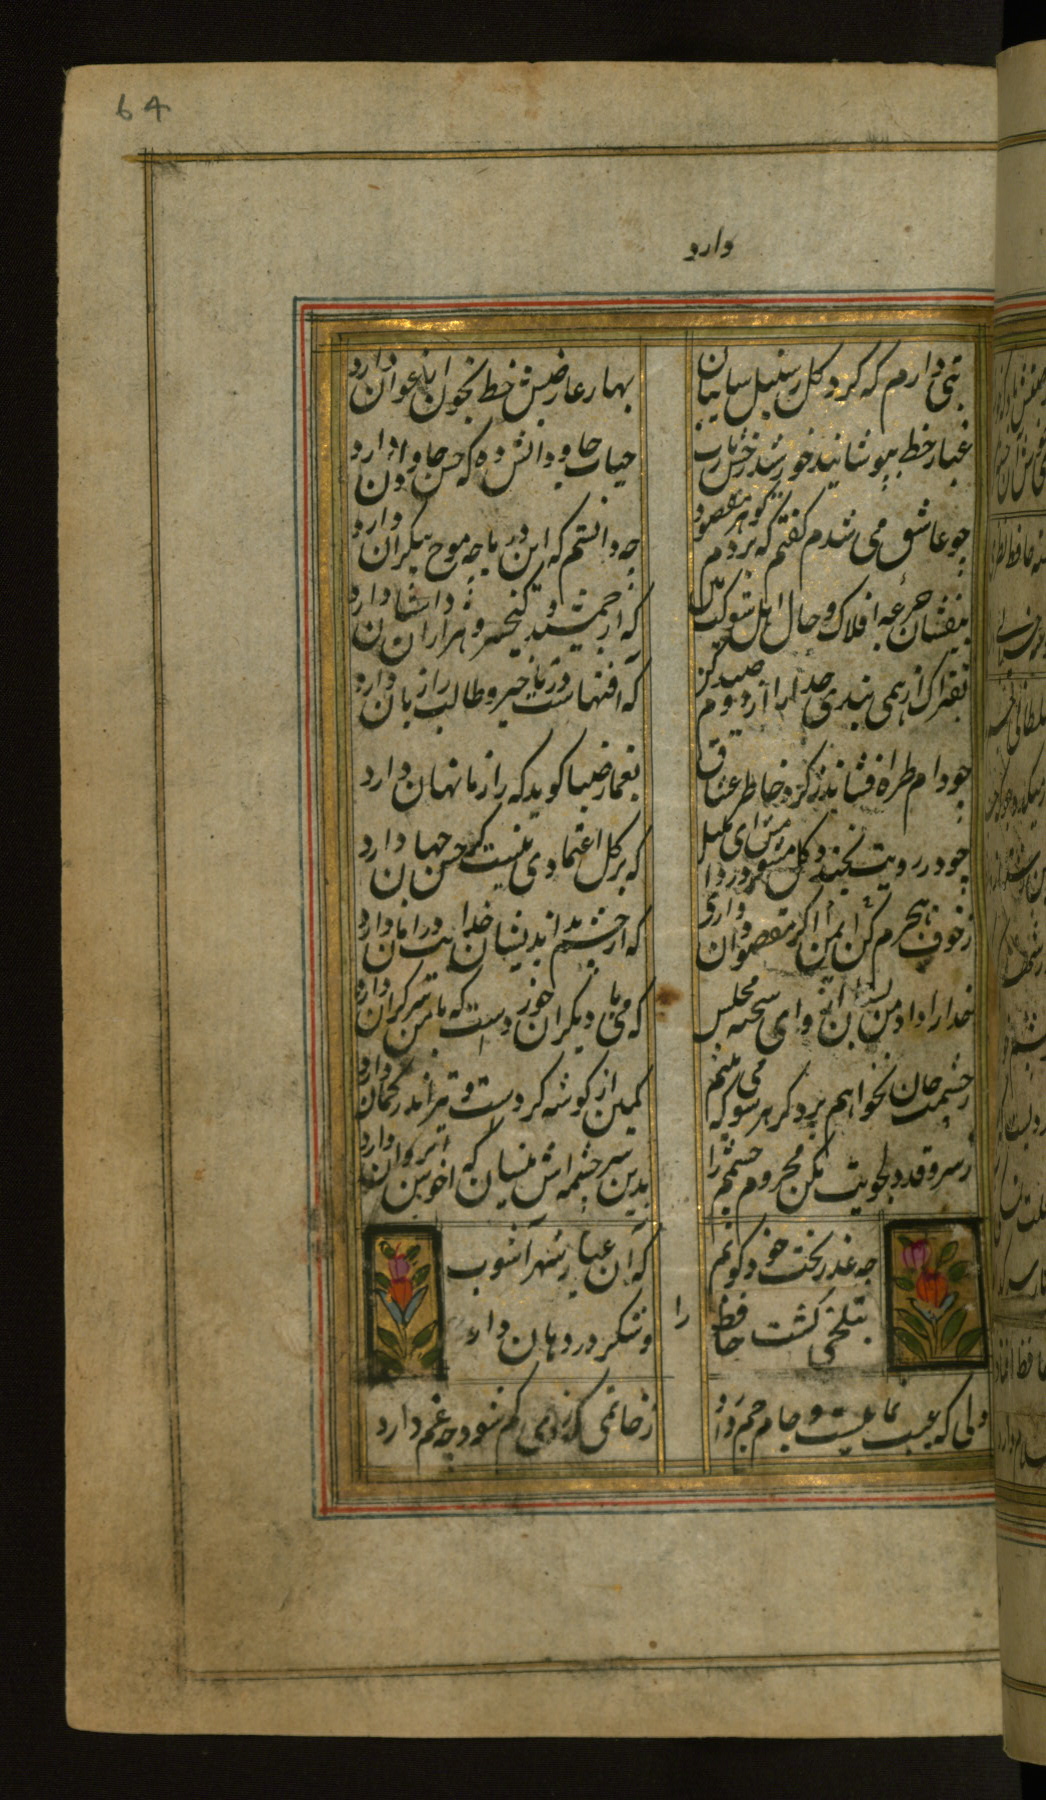 64
وارد
بتی دارم که گرد گل ز سنبل سایبان
بهار عارضش خط بخون ارغوان دارد
غبار خط بپوشانید خورشید رخش یارب
حیات جاودانش ده که حسن جاودان دارد
چو عاشق می شدم گفتم که بردم گوهر مقصود
چه دانستم که این دریا چه موج بیکران دارد
بیفشان جرعه افلاک و حال اهل شوکت بین
که از جمشید و کیخسرو هزاران داستان دارد
بفتراک ار همی بندی خدا را زودم صید کن
که آفتهاست در تاخیر و طالب را زیان دارد
چو دام طره افشاند ز گرد خاطر عشاق
بغماز صبا گوید که راز ما نهان دارد
چو در رویت بخندد گل مشو در دامش ای بلبل
که بر گل اعتمادی نیست گر حسن جهان دارد
ز خوف هجرم کن ایمن اگر مقصود آن داری
که از چشم بد اندیشان خدایت در امان دارد
خدا را داد من بستان ازو ای شحنه مجلس
که می با دیگران خورد است که با من سر گران دارد
ز چشمت جان نخواهم برد کز هر سو که می بینم
کمین از گوشه کردست و تیر اندر کمان دارد
ز سرو قد دلجویت مکن محروم چشمم را
بدین سرچشمه اش بنشان که خوش آبی روان دارد
چه عذر بخت خود گویم
که آن عیار شهر آشوب
بتلخی کشت حافظ را
و شکر در دهان دارد
ولی که غیب نمایست و جام جم دارد
ز خاتمی که ز دمی گم شود چه غم دارد